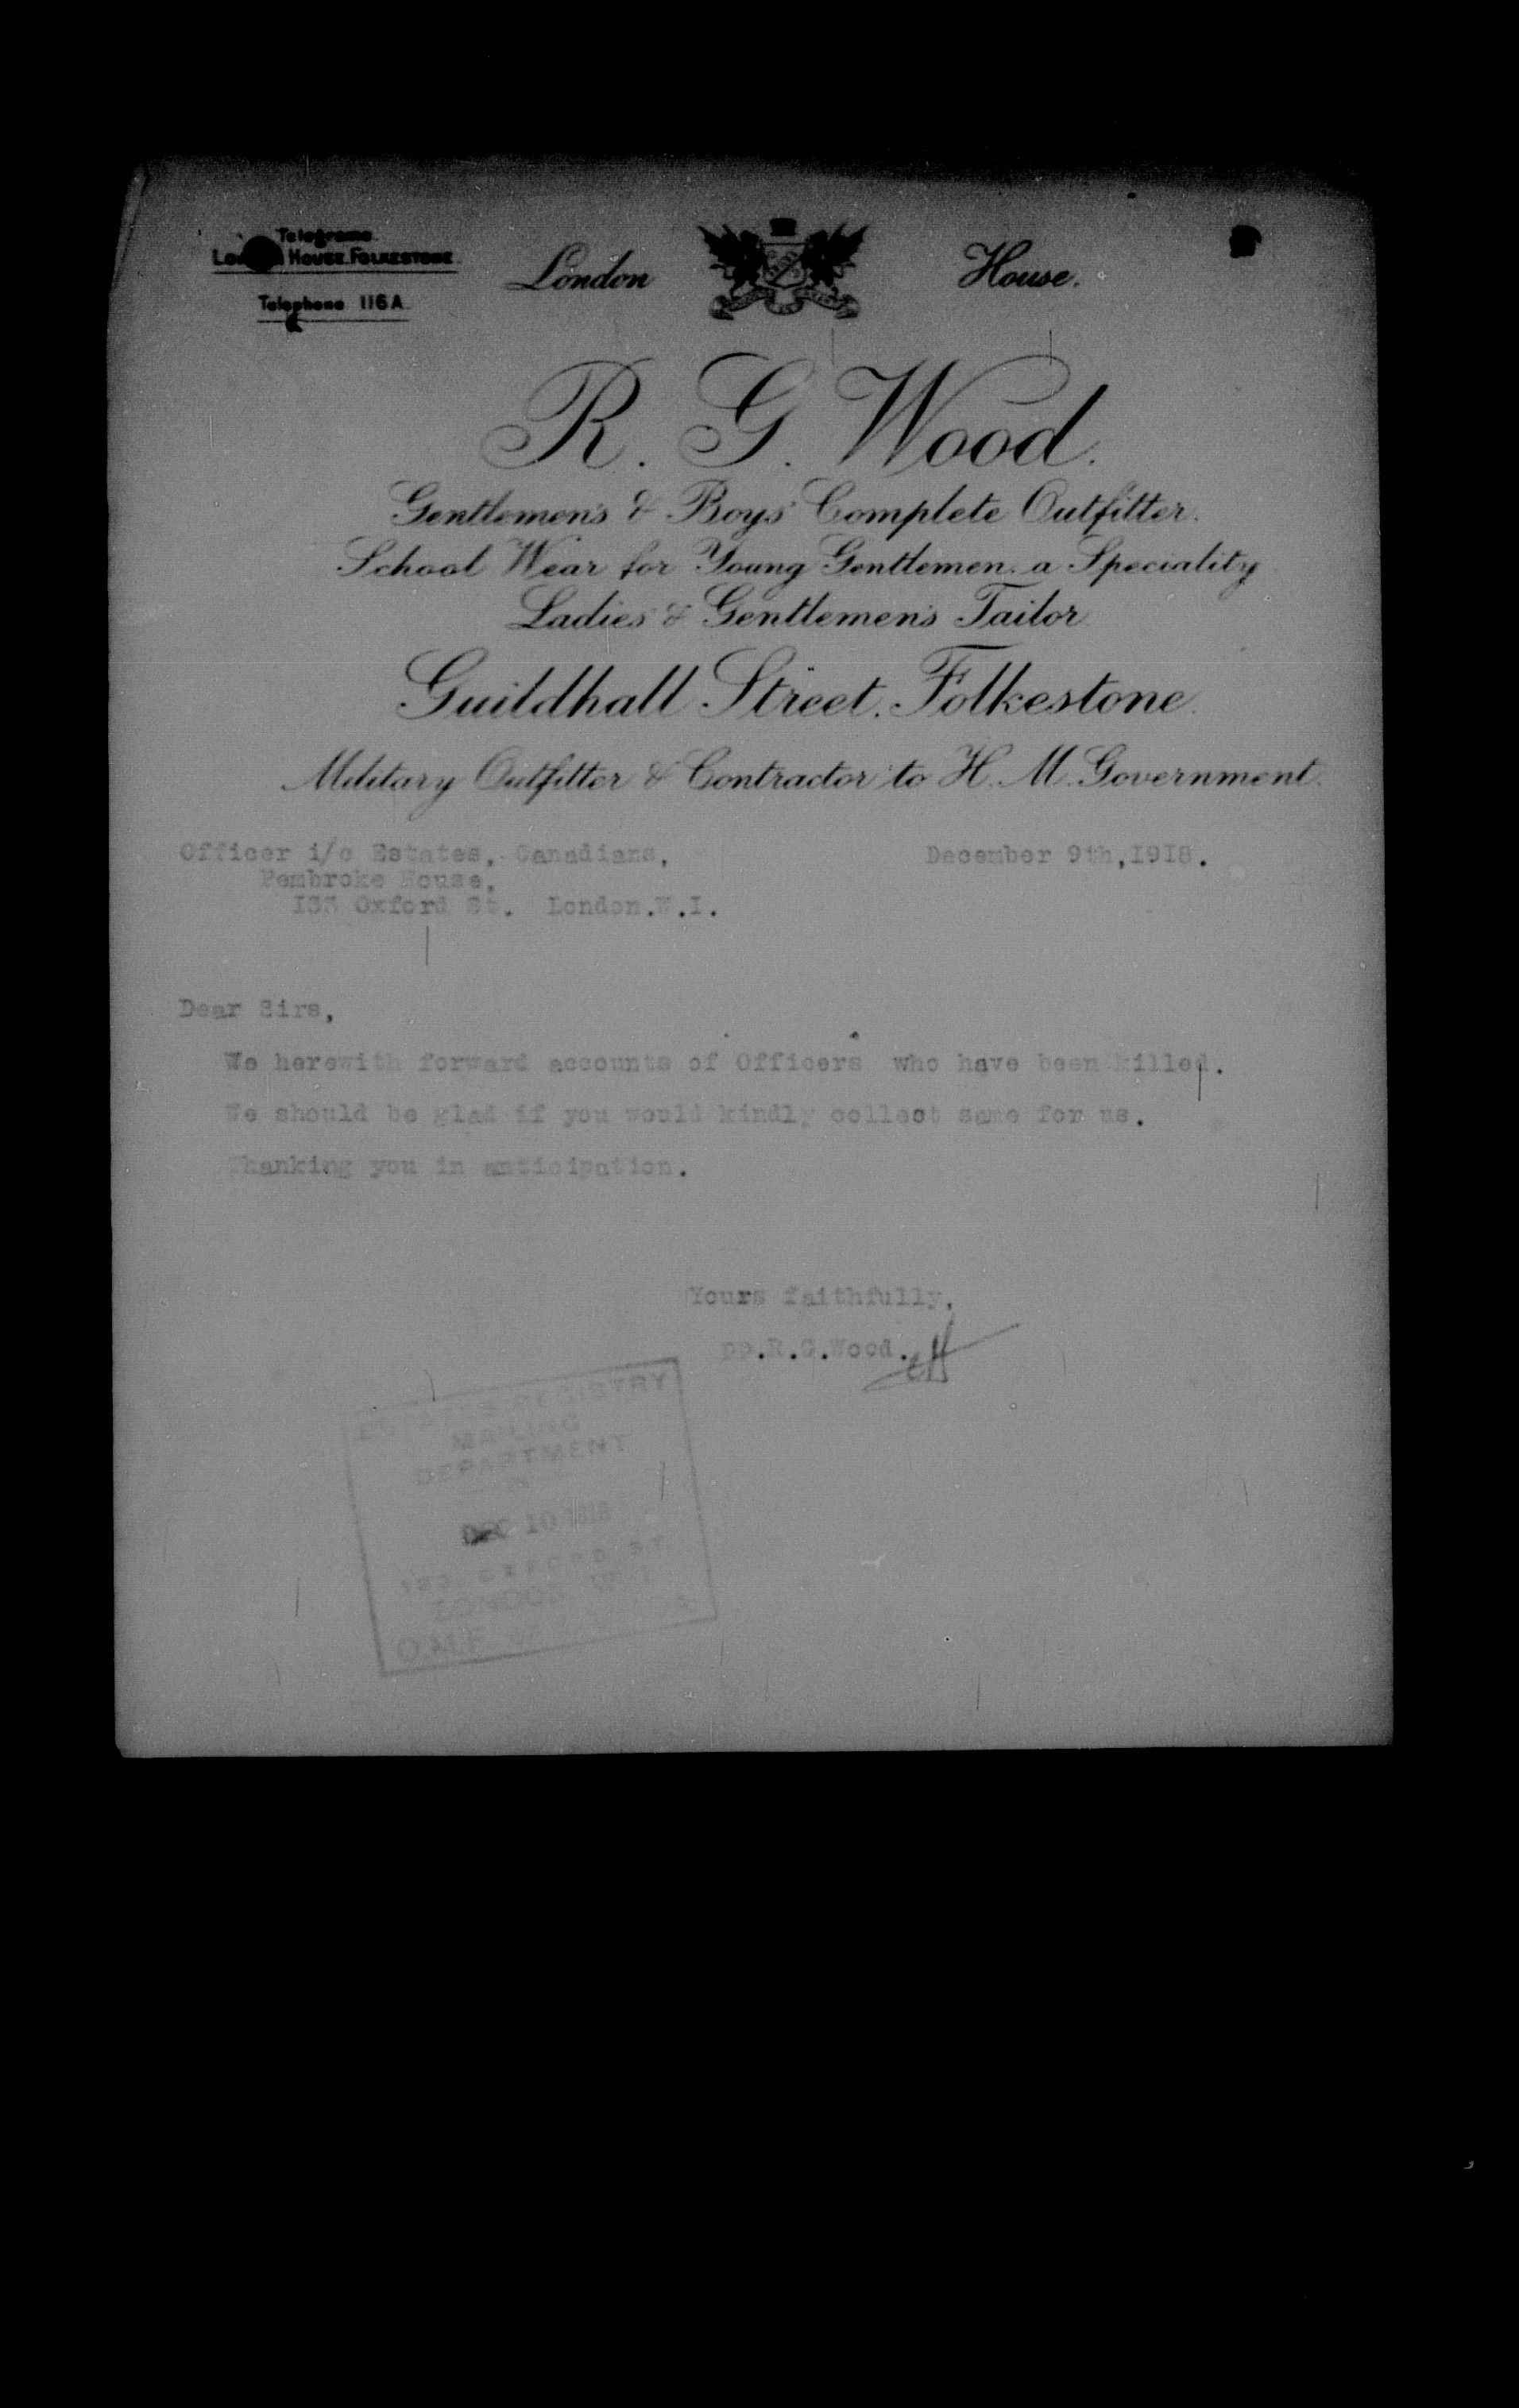 Telegrams
London House. Folkestone.
Telephone 116A.
London House.
R. G. Wood.
Gentlemen's & Boys' Complete Outfitter.
School Wear for Young Gentlemen a Speciality
Ladies' & Gentlemen's Tailor
Guildhall Street. Folkestone.
Military Outfitter & Contractor to H. M. Government.
Officer i/c Estates, Canadians, December 9th,1918.
Pembroke House,
133 Oxford St. London.W.I.
Dear Sirs,
We herewith forward accounts of Officers who have been killed.
We should be glad if you would kindly collect same for us.
Thanking you in anticipation.
Yours faithfully,
pp.R.G.Wood.
ESTATES REGISTRY
MAILING
DEPARTMENT
DEC 10 1918
133, OXFORD ST.
LONDON W.1
O.M.F.